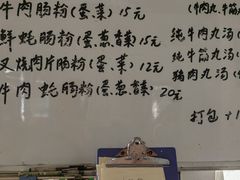 牛肉肠粉(蛋菜)15元
鲜蚝肠粉(蛋葱香菜)15元
叉烧肉片肠粉(蛋菜)12元
牛肉蚝肠粉(蛋葱香菜)20元
(牛肉丸、牛筋
纯牛肉丸汤(
纯牛筋丸汤(
猪肉丸汤(
打包+1